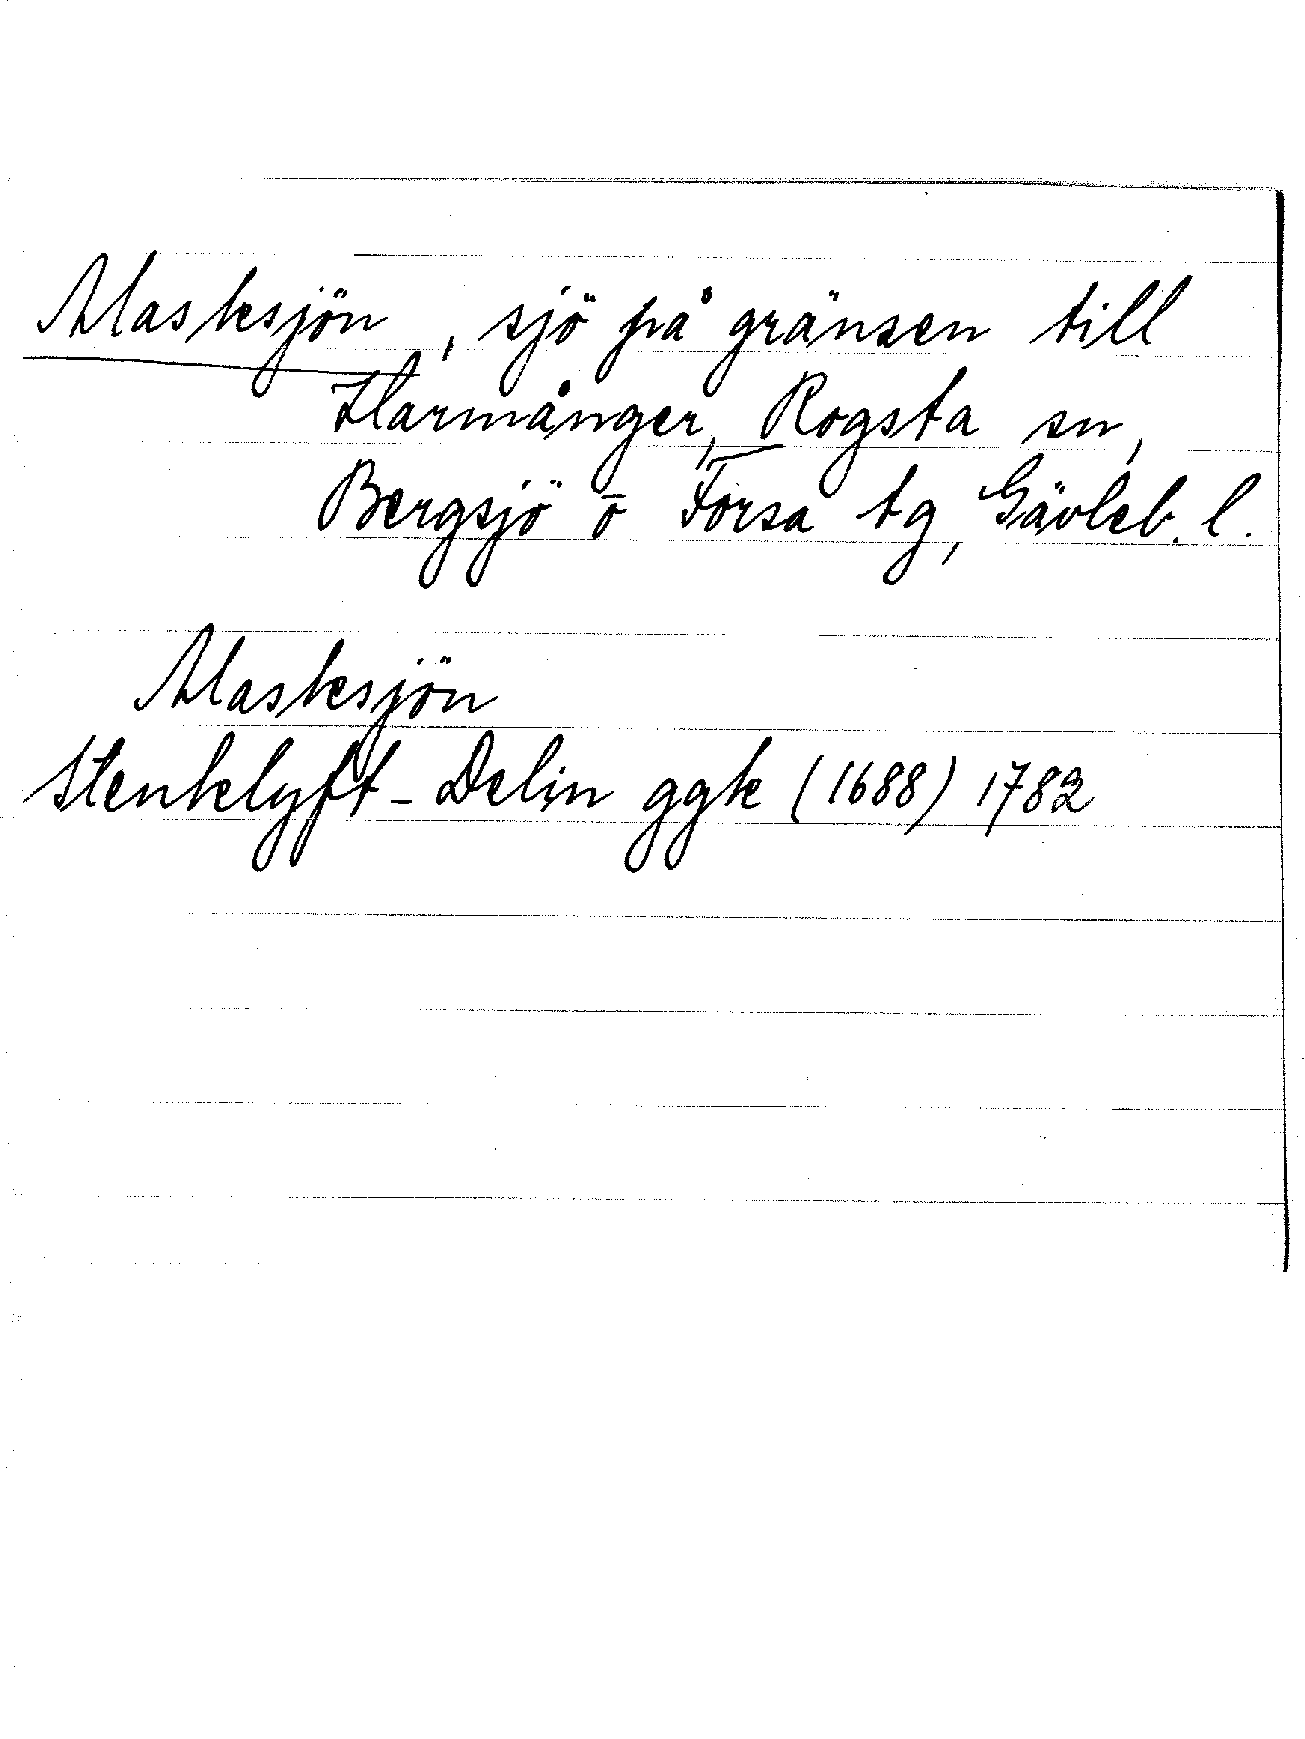 Masksjön, sjö på gränsen till
Harmånger, Rogsta sn,
Bergsjö o Forsa tg, Gävleb. l.
Masksjön
Stenklyft - Delin ggk (1688) 1782